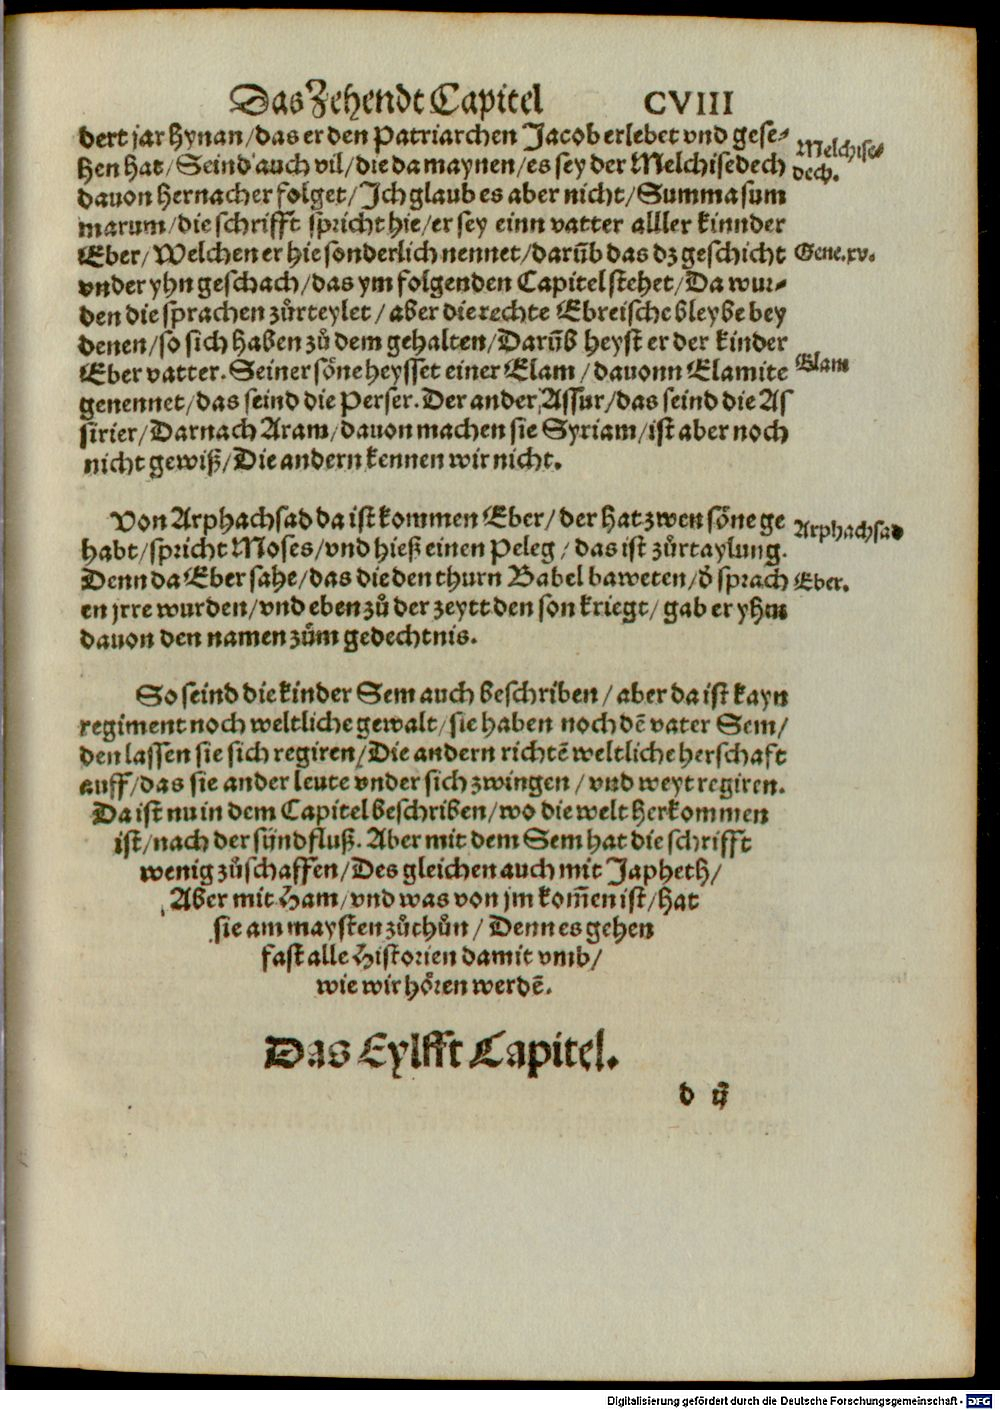 Das Zehendt Capitel CVIII
dert jar hynan/das er den Patriarchen Jacob erlebet vnd gese-
hen hat/Seind auch vil/die da maynen/es sey der Melchisedech
Melchise-
dech.
dauon hernacher folget/Ich glaub es aber nicht/Summa sum
marum/die schrifft spricht hie/er sey einn vatter alller kinnder
Eber/Welchen er hie sonderlich nennet/darūb das dz geschicht
Gene.xv.
vnder yhn geschach/das ym folgenden Capitel stehet/Da wur-
den die sprachen zůrteylet/aber die rechte Ebreische bleybe bey
denen/so sich haben zů dem gehalten/Darūb heyst er der kinder
Eber vatter. Seiner söne heysset einer Elam/dauonn Elamite
Elam
genennet/das seind die Perser. Der ander Assur/das seind die As
sirier/Darnach Aram/dauon machen sie Syriam/ist aber noch
nicht gewiß/Die andern kennen wir nicht.
Von Arphachsad da ist kommen Eber/der hat zwen söne ge
Arphachsad
habt/spricht Moses/vnd hieß einen Peleg/das ist zůrtaylung.
Denn da Eber sahe/das die den thurn Babel baweten/d̕ sprach
Eber.
en jrre wurden/vnd eben zů der zeytt den son kriegt/gab er yhm
dauon den namen zům gedechtnis.
So seind die kinder Sem auch beschriben/aber da ist kayn
regiment noch weltliche gewalt/sie haben noch dē vater Sem/
den lassen sie sich regiren/Die andern richtē weltliche herschaft
auff/das sie ander leute vnder sich zwingen/vnd weyt regiren.
Da ist nu in dem Capitel beschriben/wo die welt herkommen
ist/nach der sündfluß. Aber mit dem Sem hat die schrifft
wenig zůschaffen/Des gleichen auch mit Japheth/
Aber mit Ham/vnd was von jm kom̄en ist/hat
sie am maysten zůthůn/Denn es gehen
fast alle Historien damit vmb/
wie wir hören werdē.
Das Eylfft Capitel.
d ij
Digitalisierung gefördert durch die Deutsche Forschungsgemeinschaft - DFG